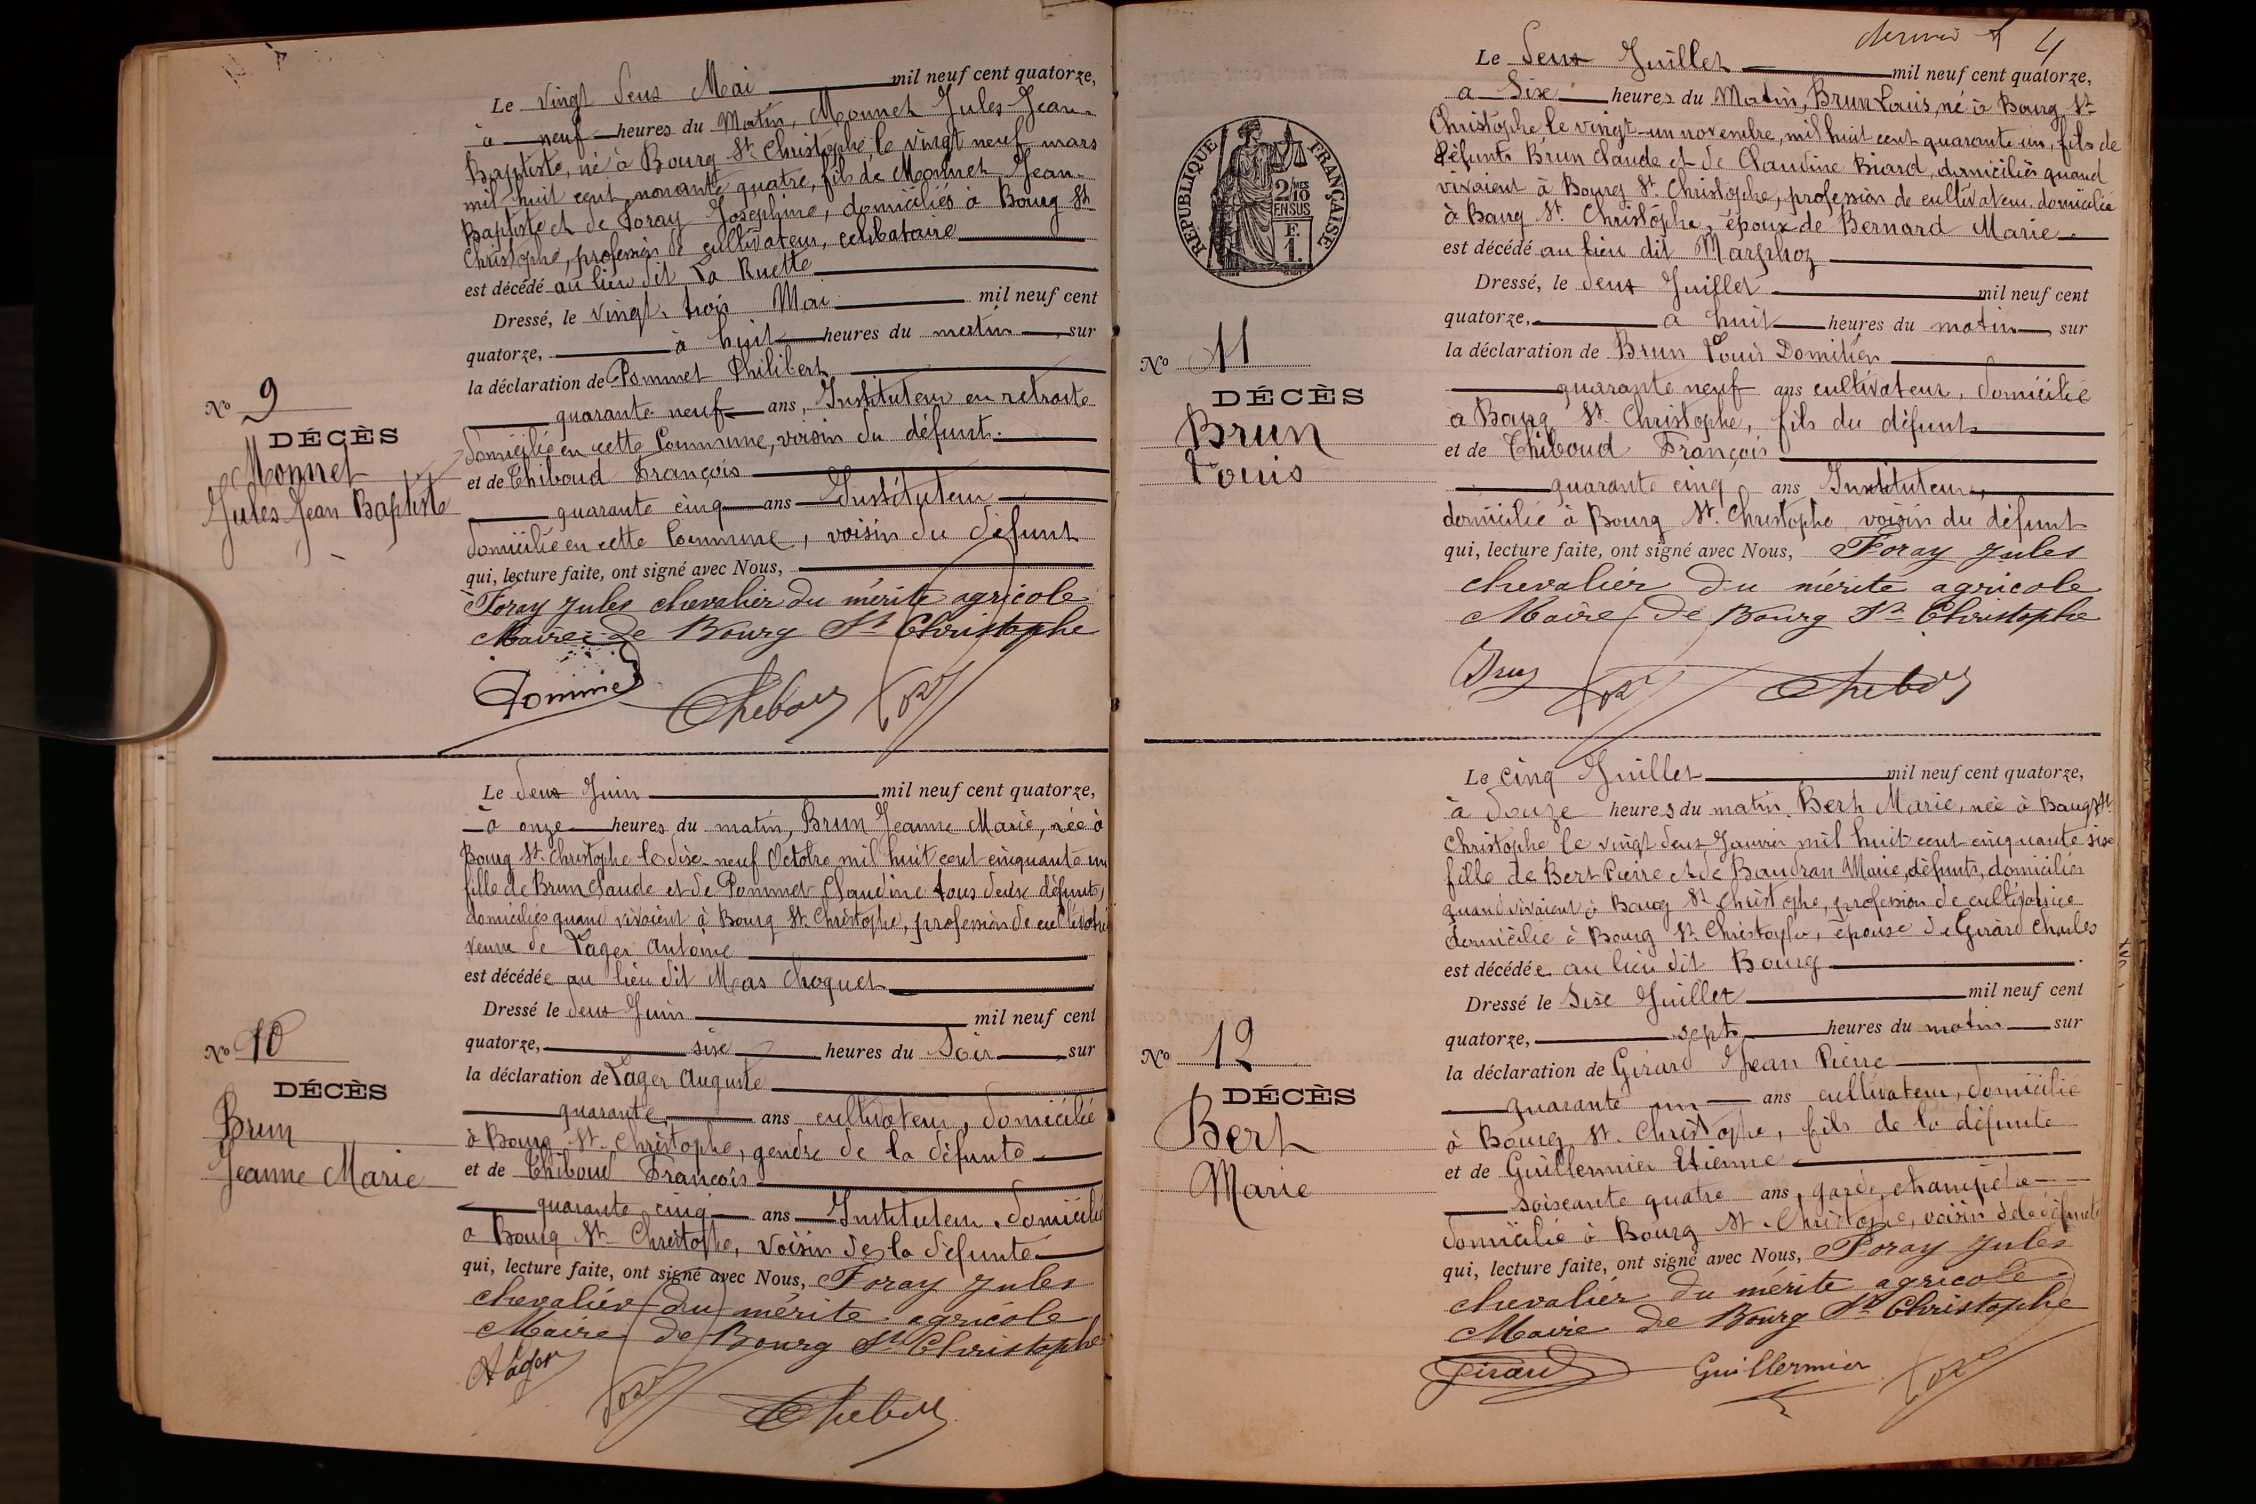 Le vingt deux Mai mil neuf cent quatorze,
à neuf heures du Matin, Monnet Jules Jean-
Baptiste, né à Bourg St Christophe, le vingt neuf mars
mil huit cent nonante quatre, fils de Monnet Jean-
Baptiste et de Foray Josephine, domiciliés à Bourg St
Christophe, profession de cultivateur, celibataire
est décédé au lieu dit La Ruette
Dressé, le vingt trois Mai mil neuf cent
quatorze, à huit heures du matin, sur
la déclaration de Pommet Philibert
quarante neuf ans, Instituteur en retraite
domicilié en cette Commune, voisin du défunt.
et de Thiboud François
quarante cinq ans Instituteur
domicilié en cette Commune, voisin du défunt
qui, lecture faite, ont signé avec Nous,
Foray Jules chevalier du mérite agricole
Maire de Bourg St Christophe
No 9
DÉCÈS
Monnet
Jules Jean Baptiste
Le deux Juin mil neuf cent quatorze,
à onze heures du matin, Brun Jeanne Marie, née à
Bourg St Christophe le dix-neuf Octobre mil huit cent cinquante un
fille de Brun Claude et de Pommet Claudine tous deux défunts,
domiciliés quand vivaient à Bourg St Christophe, profession de cultivatrice
veuve de Lager Antoine
est décédée au lieu dit Mas Choquet
Dressé le deux Juin mil neuf cent
quatorze, sixe heures du Soir, sur
la déclaration de Lager Auguste
quarante ans cultivateur, domicilié
à Bourg St. Christophe, gendre de la défunte
et de Thiboud François
quarante cinq ans Instituteur, domicilié
à Bourg St Christophe, voisin de la défunte
qui, lecture faite, ont signé avec Nous, Foray Jules
chevalier du mérite agricole
Maire de Bourg St Christophe
Lager
No 10
DÉCÈS
Brun
Jeanne Marie
4
Le deux Juillet mil neuf cent quatorze,
à Sixe heures du Matin, Brun Louis, né à Bourg St
Christophe le vingt-un novembre, mil huit cent quarante un, fils de
défunts Brun Claude et de Claudine Biard, domiciliés quand
vivaient à Bourg St. Christophe, profession de cultivateur domicilié
à Bourg St. Christophe, époux de Bernard Marie
est décédé au lieu dit Marfhoz
Dressé, le deux Juillet mil neuf cent
quatorze, à huit heures du matin, sur
la déclaration de Brun Louis Domitien
quarante neuf ans cultivateur, domicilié
à Bourg St. Christophe, fils du défunt
et de Thiboud François
quarante cinq ans Instituteur,
domicilié à Bourg St. Christophe voisin du défunt
qui, lecture faite, ont signé avec Nous, Foray Jules
chevalier du mérite agricole
Maire de Bourg St Christophe
REPUBLIQUE FRANÇAISE
2/10MES
EN SUS
F.
1.
No 11
DÉCÈS
Brun
Louis
Le cinq Juillet mil neuf cent quatorze,
à douze heures du matin Bert Marie, née à Bourg St
Christophe le vingt deux Janvier mil huit cent cinquante sixe
fille de Bert Pierre et de Baudran Marie, défunts, domiciliés
quand vivaient à Bourg St Christophe, profession de cultivatrice
domiciliée à Bourg St Christophe, épouse de Girard Charles
est décédée au lieu dit Bourg
Dressé le Sixe Juillet mil neuf cent
quatorze, sept heures du matin sur
la déclaration de Girard Jean Pierre
quarante un ans cultivateur, domicilié
à Bourg St. Christophe, fils de la défunte
et de Guillermier Etienne
soixante quatre ans, garde champêtre
domicilié à Bourg St. Christophe, voisin de la défunte
qui, lecture faite, ont signé avec Nous, Foray Jules
chevalier du mérite agricole
Maire de Bourg St Christophe
Girard Guillermier
No 12
DÉCÈS
Bert
Marie